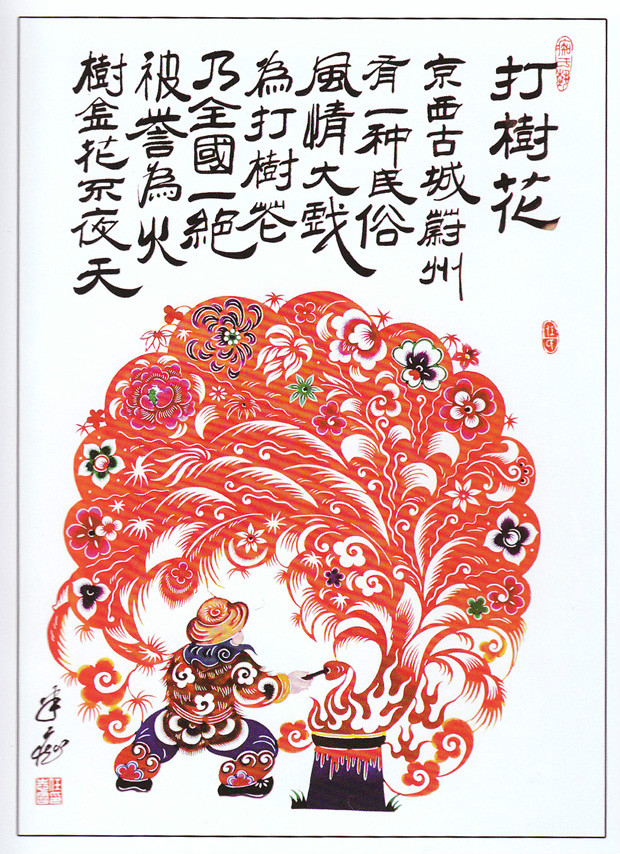 打樹花
京西古城蔚州
有一种民俗
風情大戲
為打樹花
乃全國一絕
被誉為火
樹金花不夜天